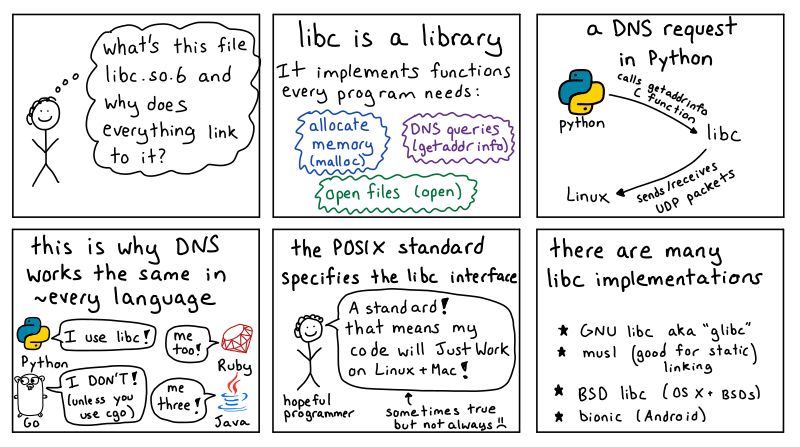 what's this file
libc.so.6 and
why does
everything link
to it?
libc is a library
It implements functions
every program needs:
allocate
memory
(malloc)
DNS queries
(getaddrinfo)
open files (open)
a DNS request
in Python
python
calls getaddrinfo
C function
libc
sends/receives
UDP packets
Linux
this is why DNS
works the same in
~every language
Python
I use libc!
me
too!
Ruby
Go
I DON'T!
(unless you
use cgo)
me
three!
Java
the POSIX standard
specifies the libc interface
A standard!
that means my
code will Just Work
on Linux + Mac!
hopeful
programmer
sometimes true
but not always :(
there are many
libc implementations
★ GNU libc aka "glibc"
★ musl (good for static)
linking
★ BSD libc (OS X + BSDs)
★ bionic (Android)